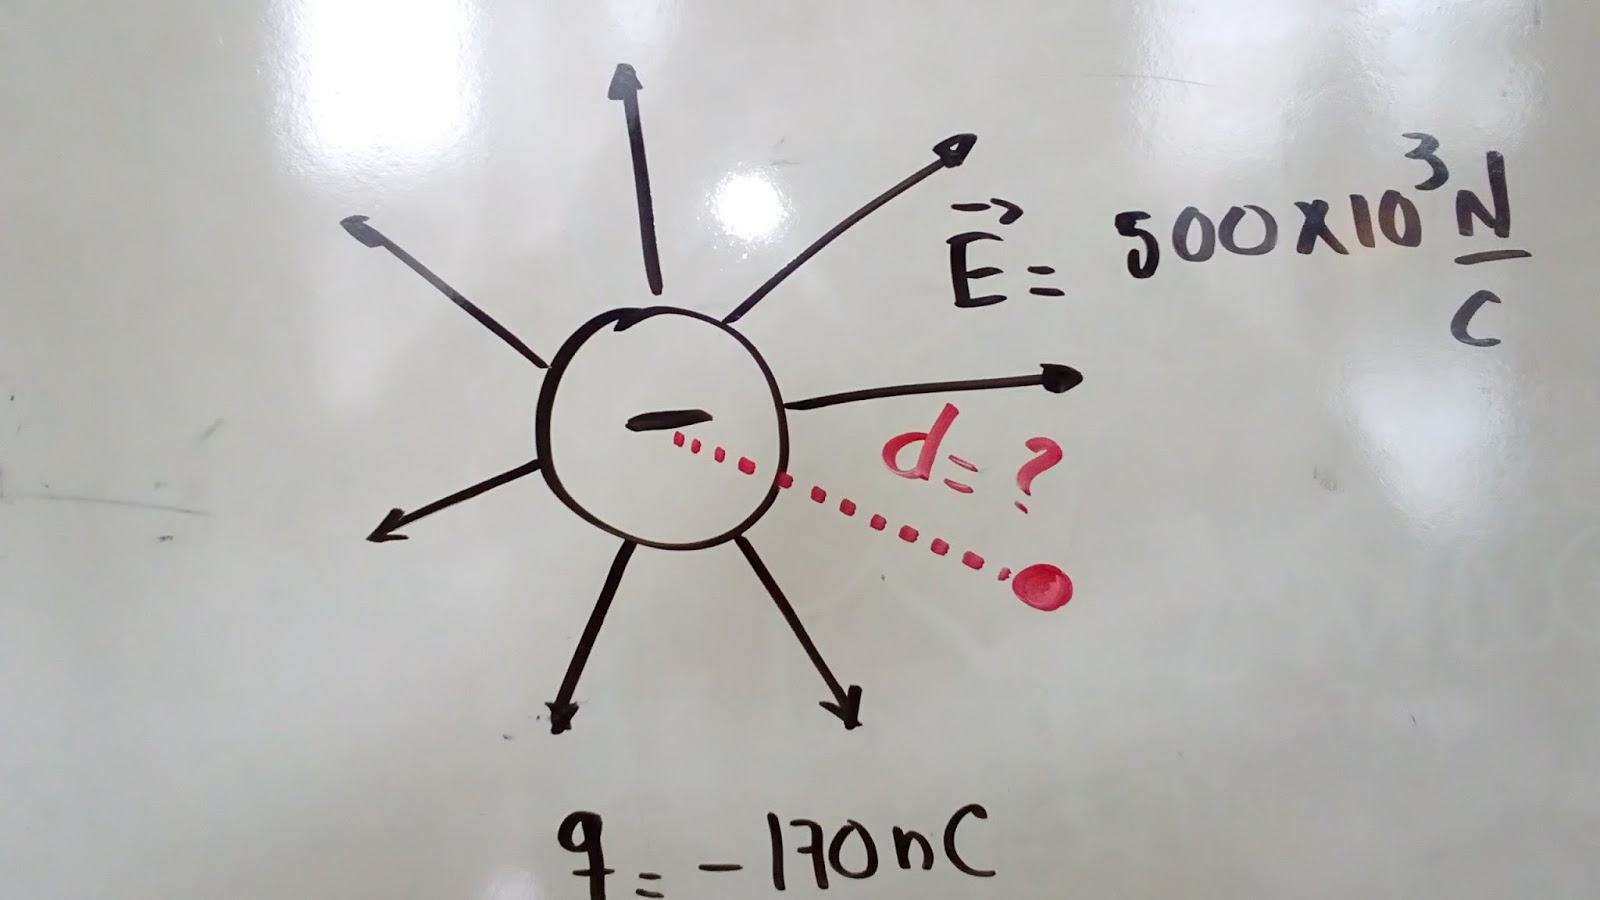 E⃗ = 500x10³ N/C
−
d = ?
q = -170nC